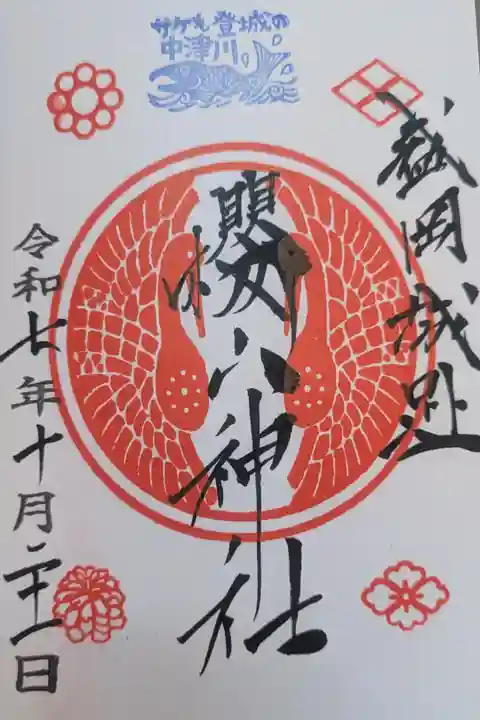 サケも登城の
中津川
盛岡城趾
櫻山神社
令和七年十月二十一日